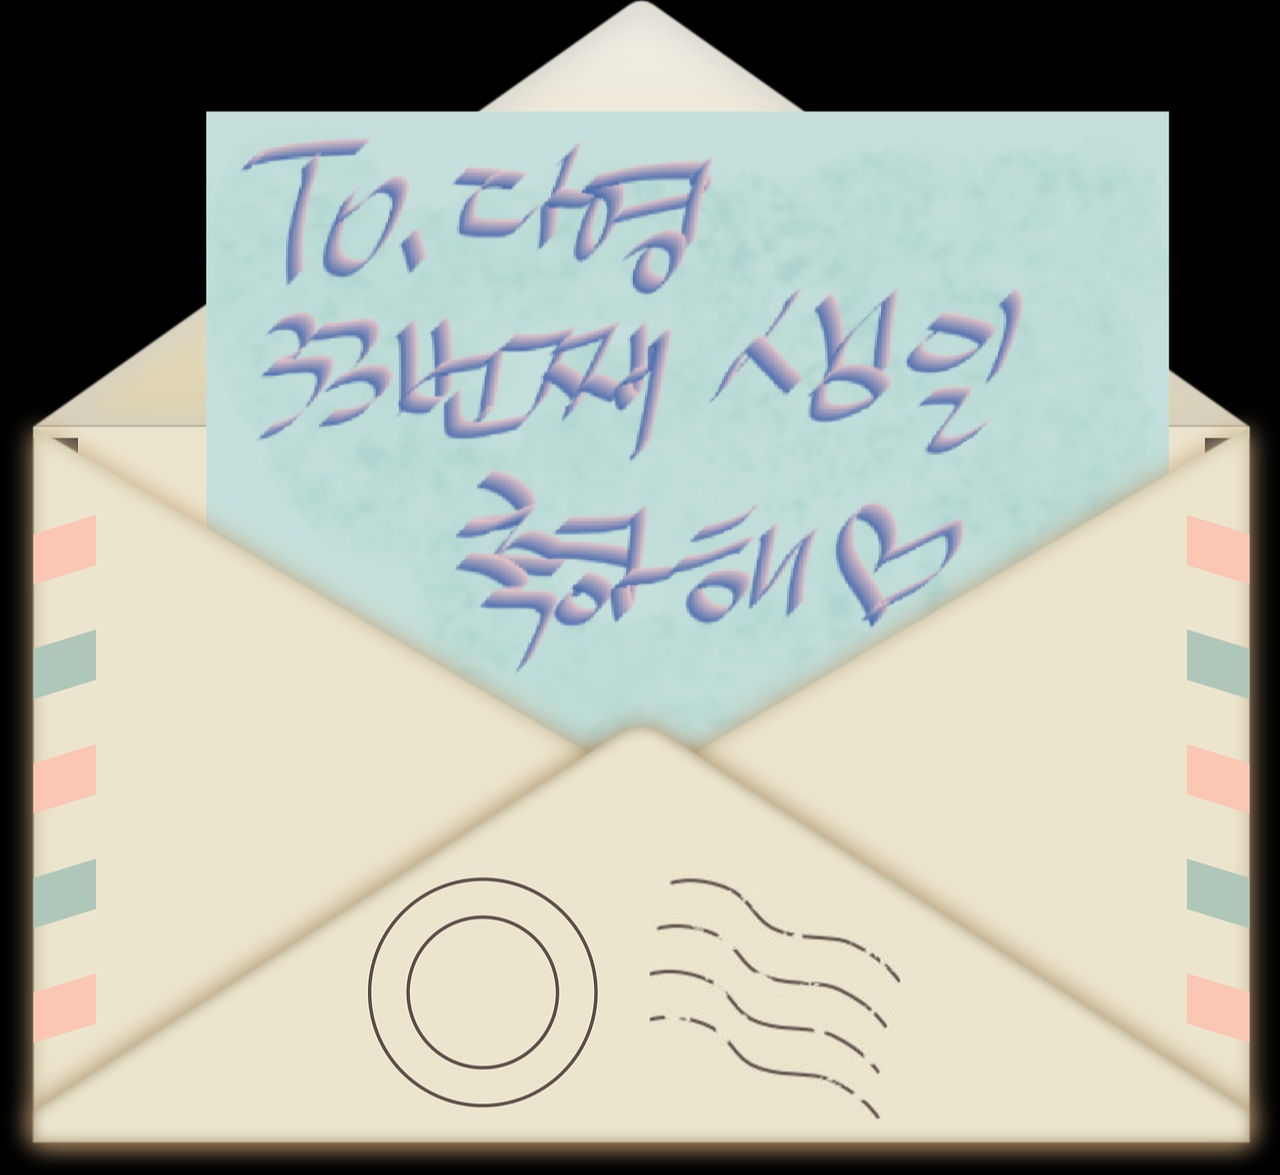 To. 다영
33번째 생일
축하해♡